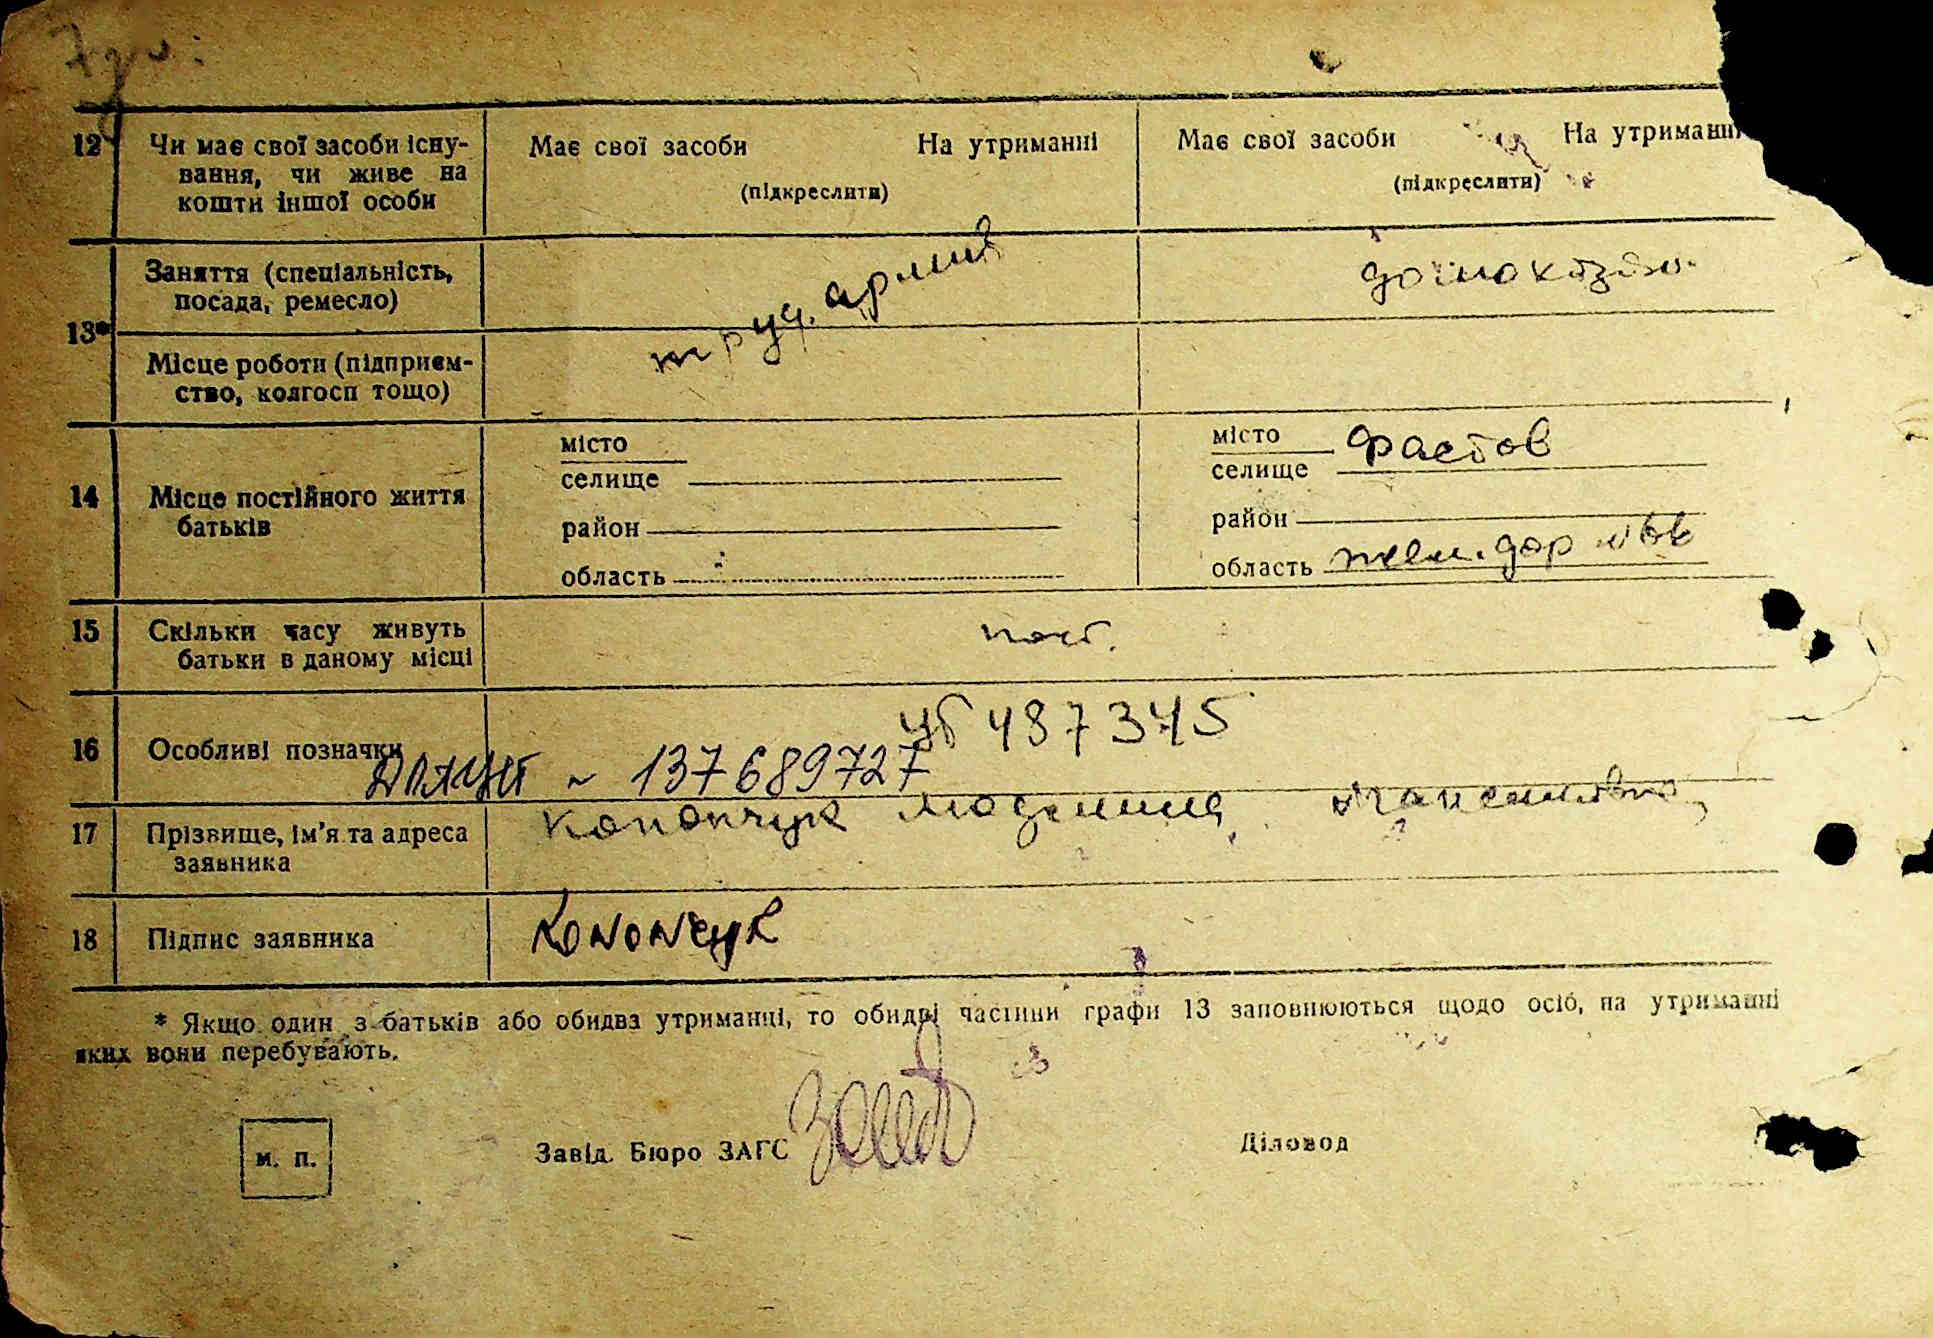 12 Чи має свої засоби існу- Має свої засоби На утриманні Має свої засоби На утриманн
вання, чи живе на
кошти іншої особи (підкреслити) (підкреслити)
13* Заняття (спеціальність, труд. армия
посада, ремесло)
Місце роботи (підприєм-
ство, колгосп тощо)
14 Місце постійного життя
батьків
місто
селище
район
область
місто Фастов
селище
район
область жел. дор №66
15 Скільки часу живуть пост.
батьки в даному місці
16 Особливі позначки УБ 487345
~ 137689727
17 Прізвище, ім'я та адреса Конончук
заявника
18 Підпис заявника Конончук
* Якщо один з батьків або обидва утриманці, то обидві частини графи 13 заповнюються щодо осіб, на утриманні
яких вони перебувають.
м. п. Завід. Бюро ЗАГС Діловод